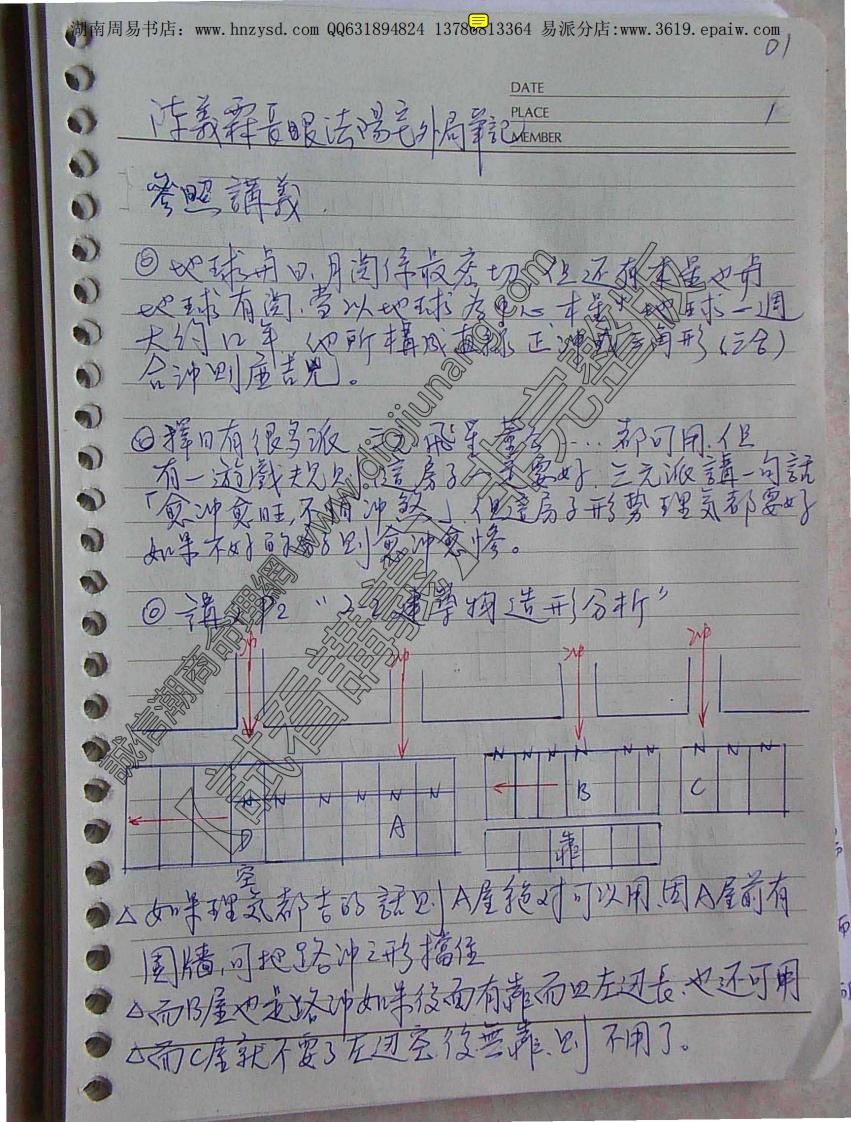 湖南周易书店：www.hnzysd.com QQ631894824 13786813364 易派分店:www.3619.epaiw.com
01
DATE
PLACE 1
MEMBER
陈義霖長眼法陽宅外局筆記
參照講義
◎地球与日、月関係最密切 但还有木星也与
地球有関,當以地球為中心 木星 地球一週
大约12年,他所構成直線正沖或三角形(三合)
合沖則 吉兇。
◎擇日有很多派 飛星 …都可用,但
有一遊戲規則 這房子一定要好,三元派講一句話
「愈沖愈旺,不 沖煞」但這房子形势理気都要好
如果不好的房子則愈沖愈惨。
◎講义P2 "2-2建築物造形分析"
沖 沖 沖 沖
N N N N N N
N N N N N
N N N
D A B C
空
靠
△如果理気都吉的話則A屋絕对可以用,因A屋前有
圍牆,可把路沖之形擋住
△而B屋也是路沖如果後面有靠而且左边長,也还可用
△而C屋就不要了左边空,後無靠,則不用了。
誠信潮商命理網 www.digijiunang.com
(試看講義,非完整版)